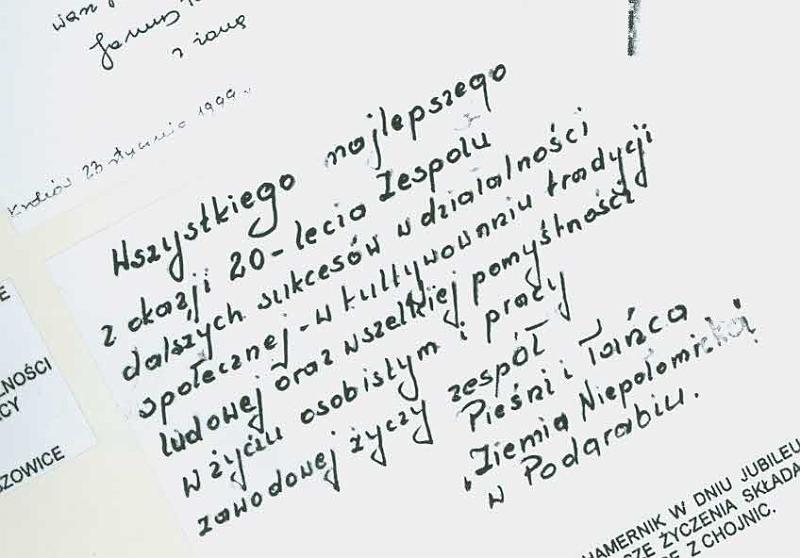 z żoną
Kraków 23 stycznia 1999
Wszystkiego najlepszego
z okazji 20-lecia Zespołu
dalszych sukcesów w działalności
społecznej - w kultywowaniu tradycji
ludowej oraz wszelkiej pomyślności
w życiu osobistym i pracy
zawodowej życzy zespół
Pieśni i Tańca
"Ziemia Niepołomicka
w Podgrabiu.
E
LNOŚCI
CY
SZOWICE
HAMERNIK W DNIU JUBILEU
SZE ŻYCZENIA SKŁADA
Z CHOJNIC.